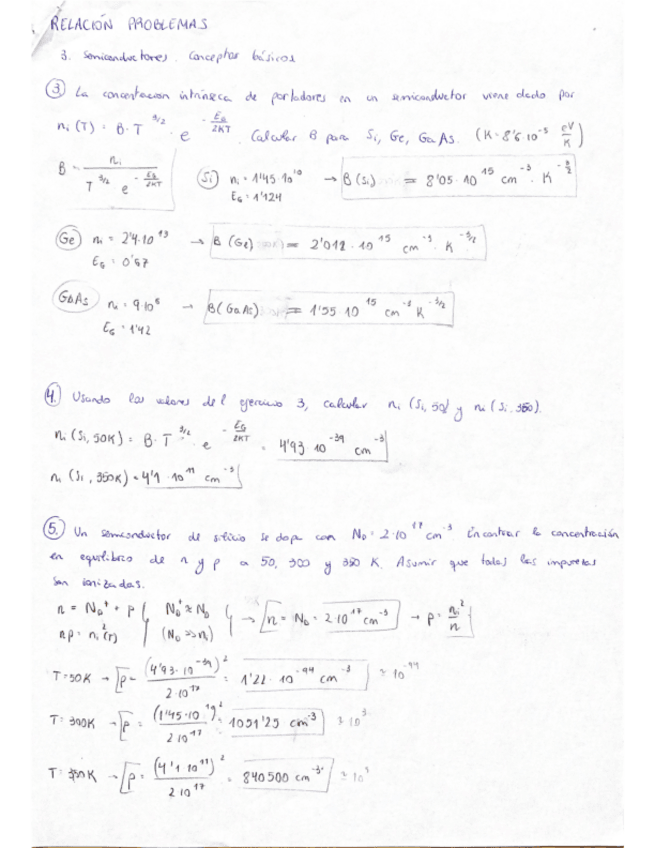 RELACIÓN PROBLEMAS
3. Semiconductores. Conceptos básicos
③ La concentracion intrínseca de portadores en un semiconductor viene dado por
ni (T) = B · T^3/2 · e^-EG/2KT. Calcular B para Si, Ge, GaAs. (K = 8'6·10^-5 eV/K)
B = ni / (T^3/2 e^-EG/2KT)
Si ni = 1'45·10^10 → B (Si) = 8'05·10^15 cm^-3 · K^-3/2
EG = 1'124
Ge ni = 2'4·10^13 → B (Ge) = 2'012·10^15 cm^-3 K^-3/2
EG = 0'67
GaAs ni = 9·10^6 → B (GaAs) = 1'55·10^15 cm^-3 K^-3/2
EG = 1'42
④ Usando los valores del ejercicio 3, calcular ni (Si, 50) y ni (Si, 350).
ni (Si, 50K) = B · T^3/2 · e^-EG/2KT = 4'93 10^-39 cm^-3
ni (Si, 350K) = 4'1·10^11 cm^-3
⑤ Un semiconductor de silicio se dopa con ND = 2·10^17 cm^-3. Encontrar la concentración
en equilibrio de n y p a 50, 300 y 350 K. Asumir que todas las impurezas
son ionizadas.
n = ND^+ + p } ND^+ ≈ ND } → n = ND = 2·10^17 cm^-3 → p = ni^2/n
np = ni^2(T) } (ND >> ni)
T = 50K → p = (4'93·10^-39)^2 / 2·10^17 = 1'21·10^-94 cm^-3 ≈ 10^-94
T = 300K → p = (1'45·10^10)^2 / 2·10^17 = 1051'25 cm^-3 ≈ 10^3
T = 350K → p = (4'1·10^11)^2 / 2·10^17 = 840500 cm^-3 ≈ 10^5